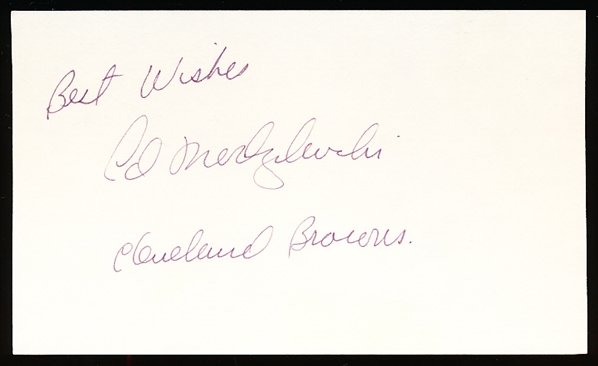 Best Wishes
Ed Modzelewski
Cleveland Browns.